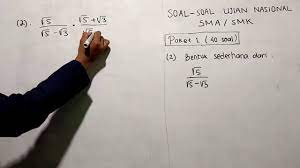 (2). √5 / (√5 - √3) · (√5 + √3) / √5
SOAL-SOAL UJIAN NASIONAL
SMA / SMK
Paket 1 (40 soal)
(2) Bentuk sederhana dari
√5 / (√5 - √3)